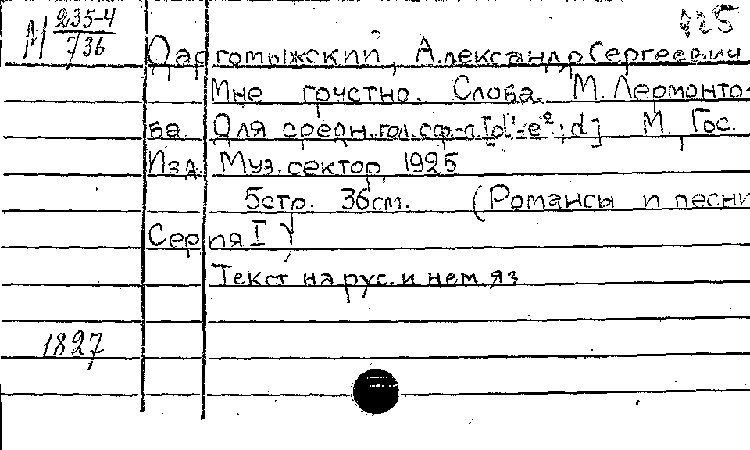 М 235-4/736
125
Даргомыжский, Александр Сергеевич
Мне грустно. Слова М. Лермонто-
ва. Для средн. гол. с ф-п. [d'-e²; d] М., Гос.
Изд. Муз. сектор, 1925
5 стр. 36 см. (Романсы и песни
Серия I)
Текст на рус. и нем. яз
1827